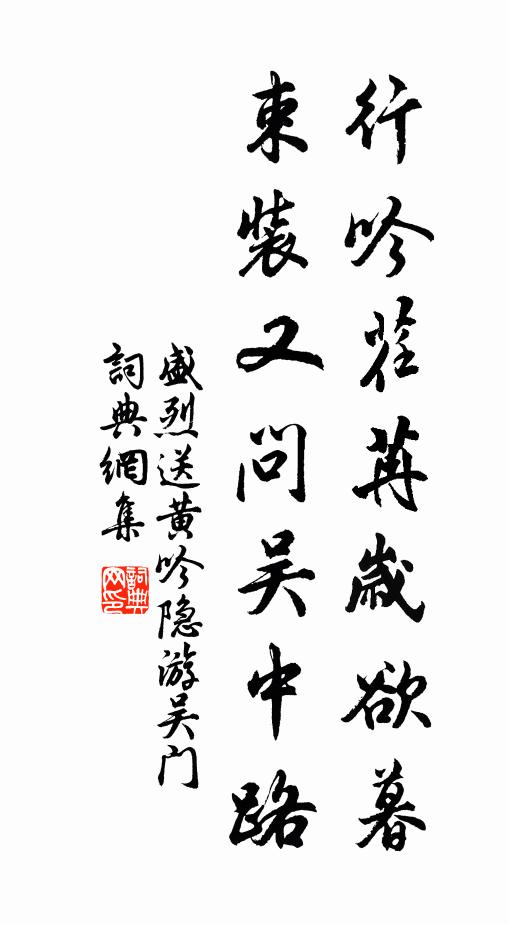 行吟荏苒歲欲暮
束裝又問吳中路
盛烈送黄吟隐游吴门
詞典網集
詞典网印